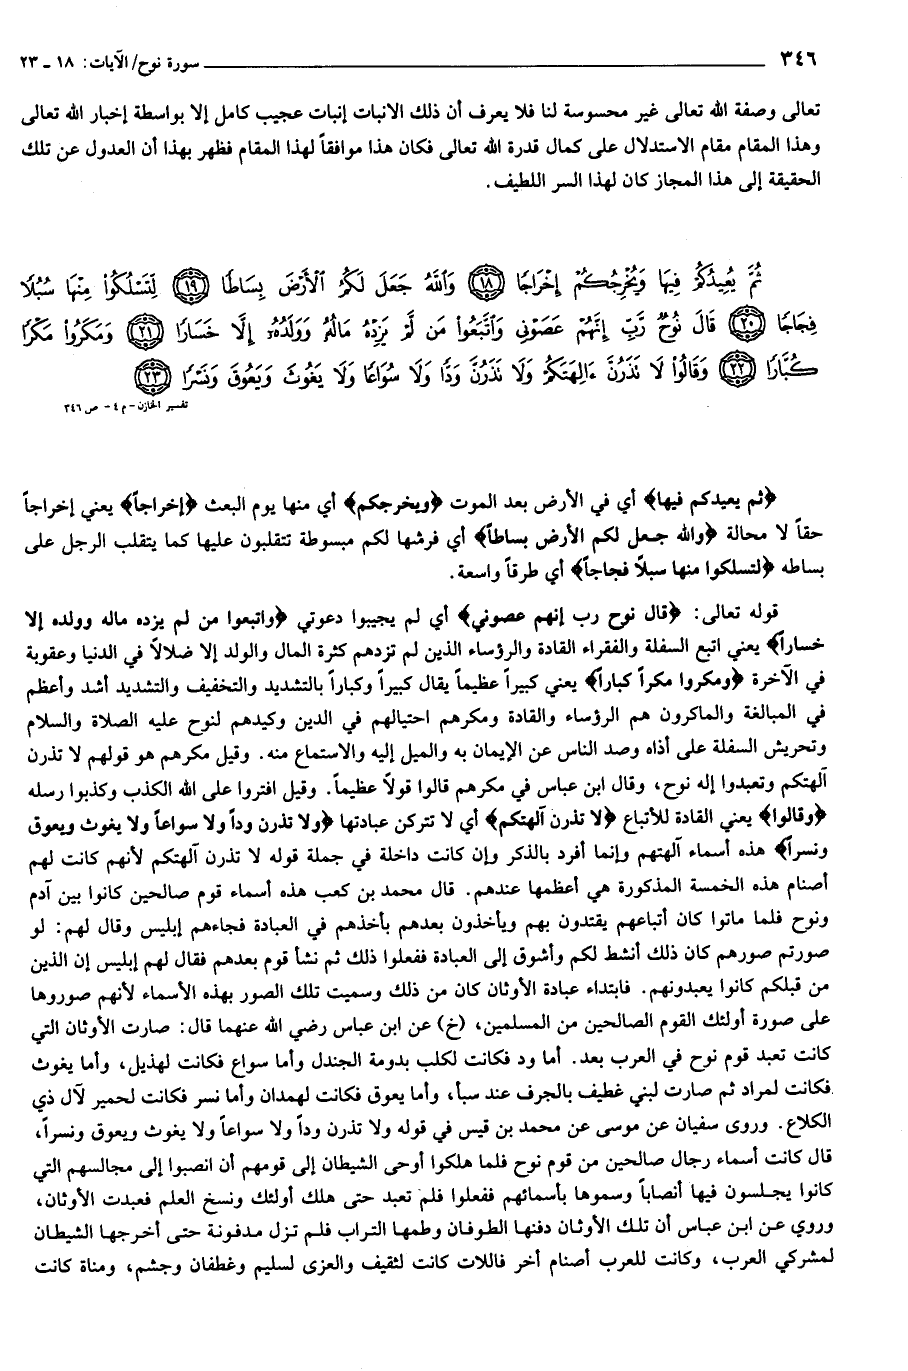 ٣٤٦ سورة نوح/ الآيات: ١٨ ـ ٢٣
تعالى وصفة الله تعالى غير محسوسة لنا فلا يعرف أن ذلك الانبات إنبات عجيب كامل إلا بواسطة إخبار الله تعالى
وهذا المقام مقام الاستدلال على كمال قدرة الله تعالى فكان هذا موافقاً لهذا المقام فظهر بهذا أن العدول عن تلك
الحقيقة إلى هذا المجاز كان لهذا السر اللطيف.
ثُمَّ يُعِيدُكُمْ فِيهَا وَيُخْرِجُكُمْ إِخْرَاجًا ﴿١٨﴾ وَاللَّهُ جَعَلَ لَكُمُ الْأَرْضَ بِسَاطًا ﴿١٩﴾ لِتَسْلُكُوا مِنْهَا سُبُلًا
فِجَاجًا ﴿٢٠﴾ قَالَ نُوحٌ رَّبِّ إِنَّهُمْ عَصَوْنِي وَاتَّبَعُوا مَن لَّمْ يَزِدْهُ مَالُهُ وَوَلَدُهُ إِلَّا خَسَارًا ﴿٢١﴾ وَمَكَرُوا مَكْرًا
كُبَّارًا ﴿٢٢﴾ وَقَالُوا لَا تَذَرُنَّ ءَالِهَتَكُمْ وَلَا تَذَرُنَّ وَدًّا وَلَا سُوَاعًا وَلَا يَغُوثَ وَيَعُوقَ وَنَسْرًا ﴿٢٣﴾
تفسير الخازن - م ٤ - ص ٣٤٦
﴿ثم يعيدكم فيها﴾ أي في الأرض بعد الموت ﴿ويخرجكم﴾ أي منها يوم البعث ﴿إخراجاً﴾ يعني إخراجاً
حقاً لا محالة ﴿والله جعل لكم الأرض بساطاً﴾ أي فرشها لكم مبسوطة تتقلبون عليها كما يتقلب الرجل على
بساطه ﴿لتسلكوا منها سبلاً فجاجاً﴾ أي طرقاً واسعة.
قوله تعالى: ﴿قال نوح رب إنهم عصوني﴾ أي لم يجيبوا دعوتي ﴿واتبعوا من لم يزده ماله وولده إلا
خساراً﴾ يعني اتبع السفلة والفقراء القادة والرؤساء الذين لم تزدهم كثرة المال والولد إلا ضلالاً في الدنيا وعقوبة
في الآخرة ﴿ومكروا مكراً كباراً﴾ يعني كبيراً عظيماً يقال كبيراً وكباراً بالتشديد والتخفيف والتشديد أشد وأعظم
في المبالغة والماكرون هم الرؤساء والقادة ومكرهم احتيالهم في الدين وكيدهم لنوح عليه الصلاة والسلام
وتحريش السفلة على أذاه وصد الناس عن الإيمان به والميل إليه والاستماع منه. وقيل مكرهم هو قولهم لا تذرن
آلهتكم وتعبدوا إله نوح، وقال ابن عباس في مكرهم قالوا قولاً عظيماً. وقيل افتروا على الله الكذب وكذبوا رسله
﴿وقالوا﴾ يعني القادة للأتباع ﴿لا تذرن آلهتكم﴾ أي لا تتركن عبادتها ﴿ولا تذرن وداً ولا سواعاً ولا يغوث ويعوق
ونسراً﴾ هذه أسماء آلهتهم وإنما أفرد بالذكر وإن كانت داخلة في جملة قوله لا تذرن آلهتكم لأنهم كانت لهم
أصنام هذه الخمسة المذكورة هي أعظمها عندهم. قال محمد بن كعب هذه أسماء قوم صالحين كانوا بين آدم
ونوح فلما ماتوا كان أتباعهم يقتدون بهم ويأخذون بعدهم بأخذهم في العبادة فجاءهم إبليس وقال لهم: لو
صورتم صورهم كان ذلك أنشط لكم وأشوق إلى العبادة ففعلوا ذلك ثم نشأ قوم بعدهم فقال لهم إبليس إن الذين
من قبلكم كانوا يعبدونهم. فابتداء عبادة الأوثان كان من ذلك وسميت تلك الصور بهذه الأسماء لأنهم صوروها
على صورة أولئك القوم الصالحين من المسلمين، (خ) عن ابن عباس رضي الله عنهما قال: صارت الأوثان التي
كانت تعبد قوم نوح في العرب بعد. أما ود فكانت لكلب بدومة الجندل وأما سواع فكانت لهذيل، وأما يغوث
فكانت لمراد ثم صارت لبني غطيف بالجرف عند سبأ، وأما يعوق فكانت لهمدان وأما نسر فكانت لحمير لآل ذي
الكلاع. وروى سفيان عن موسى عن محمد بن قيس في قوله ولا تذرن وداً ولا سواعاً ولا يغوث ويعوق ونسراً،
قال كانت أسماء رجال صالحين من قوم نوح فلما هلكوا أوحى الشيطان إلى قومهم أن انصبوا إلى مجالسهم التي
كانوا يجلسون فيها أنصاباً وسموها بأسمائهم ففعلوا فلم تعبد حتى هلك أولئك ونسخ العلم فعبدت الأوثان،
وروي عن ابن عباس أن تلك الأوثان دفنها الطوفان وطمها التراب فلم تزل مدفونة حتى أخرجها الشيطان
لمشركي العرب، وكانت للعرب أصنام أخر فاللات كانت لثقيف والعزى لسليم وغطفان وجشم، ومناة كانت